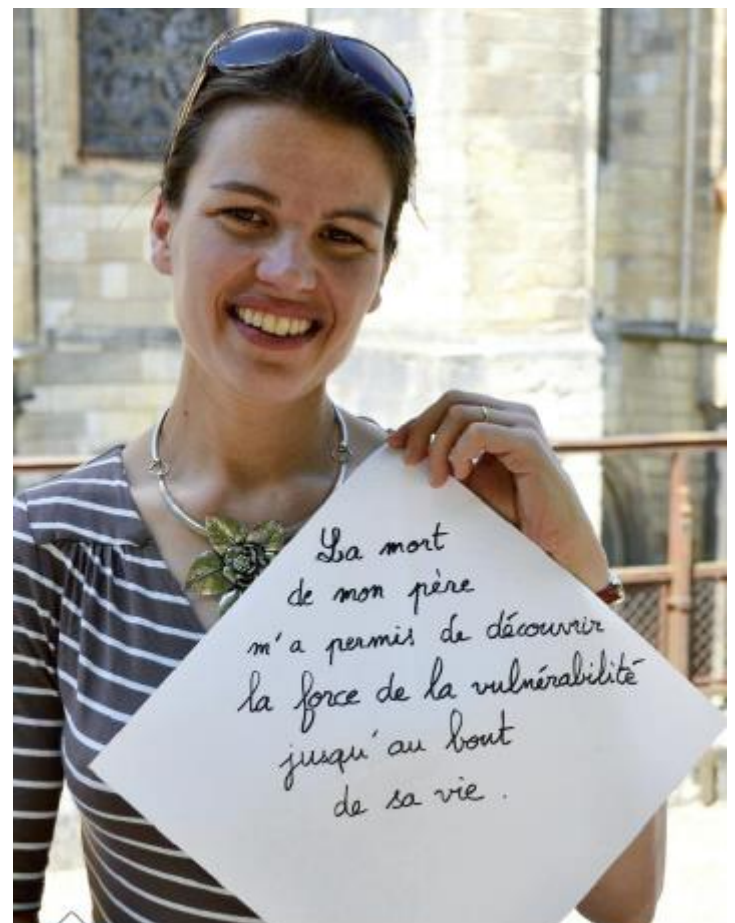 La mort
de mon père
m'a permis de découvrir
la force de la vulnérabilité
jusqu'au bout
de sa vie.